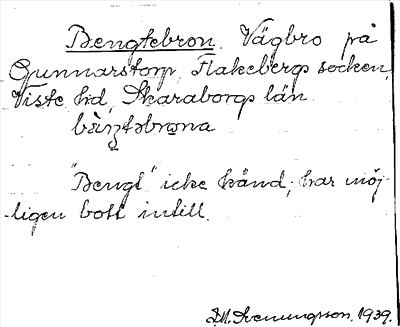 Bengtebron. Vägbro på
Gunnarstorp, Flakebergs socken,
Viste hd, Skaraborgs län.
bàŋtəbrωna
"Bengt" icke känd; har möj-
ligen bott intill.
J.M. Svenungsson. 1939.